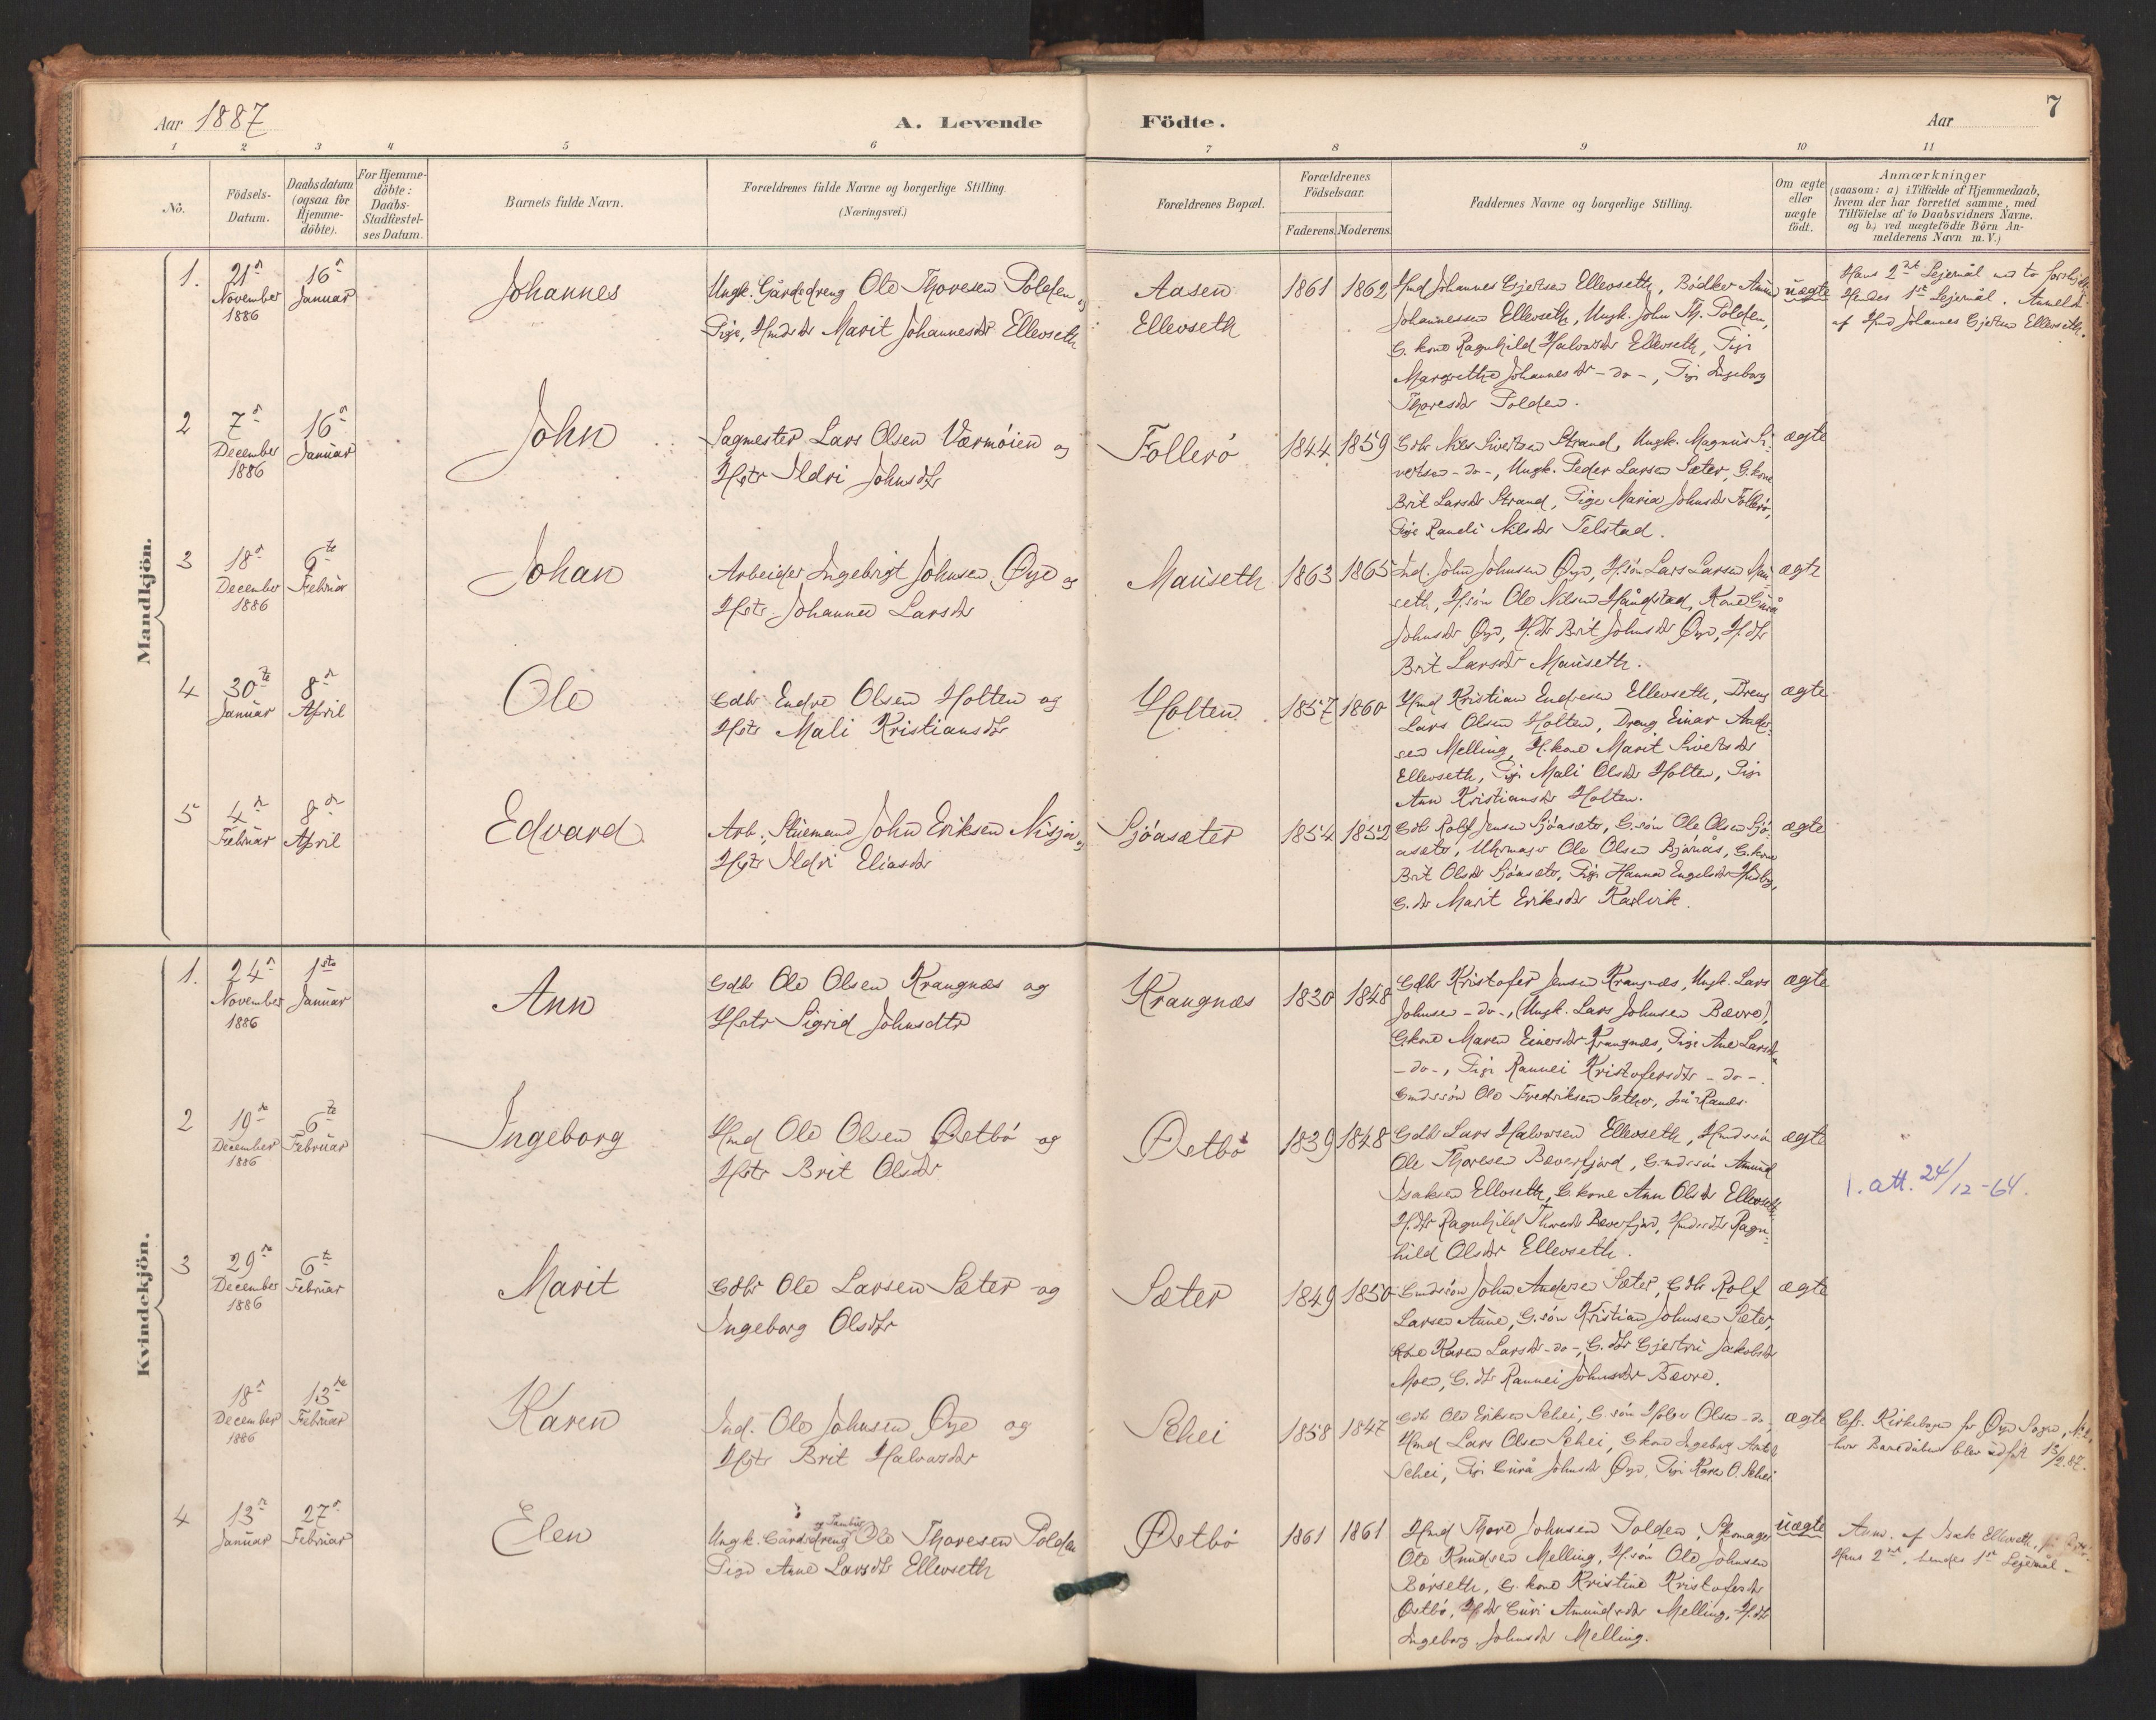 Aar 1887
A. Levende
Födte.
Aar
7
1 2 3 4 5 6 7 8 9 10 11
No.
Födsels-
Datum.
Daabsdatum
(ogsaa for
Hjemme-
döbte).
For Hjemme-
döbte:
Daabs-
Stadfæstel-
ses Datum.
Barnets fulde Navn.
Forældrenes fulde Navne og borgerlige Stilling.
(Næringsvei.)
Forældrenes Bopæl.
Forældrenes
Födselsaar.
Faderens. Moderens.
Faddernes Navne og borgerlige Stilling.
Om ægte
eller
uægte
födt.
Anmærkninger
(saasom: a) i Tilfælde af Hjemmedaab,
hvem der har forrettet samme, med
Tilföielse af to Daabsvidners Navne.
og b) ved uægtefödte Börn An-
melderens Navn m.V.)
Mandkjön.
1.
21d
November
1886
16d
Januar
Johannes
Ungk. Gårddreng Ole Thoresen Polden og
Pige, Hmdsdtr Marit Johannesdtr Ellevseth
Aasen
Ellevseth
1861 1862
Hmd Johannes Gjertsen Ellevseth, Bödker Amund
Johannessen Ellevseth, Ungk. John Th. Polden,
G. kone Ragnhild Halvorsdtr Ellevseth, Pige
Margrethe Johannesdtr - do -, Pige Ingeborg
Thoresdtr Polden.
uægte
Hans 2det Lejermål med to forskjell.
Hendes 1ste Lejermål. Anmeldt
af Hmd Johannes Gjertsen Ellevseth.
2
7d
December
1886
16d
Januar
John
Sagmester Lars Olsen Værmöien og
Hstr Ildri Johnsdtr
Follerö
1844 1859
Gdbr Nils Sivertsen Strand, Ungk. Magnus Si-
vertsen - do -, Ungk. Peder Larsen Sæter, G. kone
Brit Larsdtr Strand, Pige Maria Johnsdtr Follerö,
Pige Randi Nilsdtr Telstad.
ægte
3
18d
December
1886
6te
Februar
Johan
Arbeider Ingebrigt Johnsen Øye og
Hstr. Johanne Larsdtr
Mauseth
1863 1865
Ind. John Johnsen Øye, H. sön Lars Larsen Mau-
seth, H. sön Ole Nilsen Håndstad, Kone Gurå
Johnsdtr Øye, H. dtr Brit Johnsdtr Øye, H. dtr
Brit Larsdtr Mauseth.
ægte
4
30te
Januar
8d
April
Ole
Gdbr Endre Olsen Holten og
Hstr Mali Kristiansdtr
Holten
1857 1860
Hmd Kristian Endresen Ellevseth, Dreng
Lars Olsen Holten, Dreng Einar Ander-
sen Melling, H. kone Marit Sivertsdtr
Ellevseth, Pige Mali Olsdtr Holten, Pige
Ann Kristiansdtr Holten.
ægte
5
4d
Februar
8d
April
Edvard
Arb., Stuemand John Eriksen Nisja og
Hstr Ildri Eliasdtr
Sjöasæter
1854 1852
Gdbr Rolf Jensen Sjöasæter, G. sön Ole Olsen Sjö-
asæter, Uhrmager Ole Olsen Bjørnås, G. kone
Brit Olsdtr Sjöasæter, Pige Hanna Engelsdtr Husby,
G. dtr Marit Eriksdtr Karlvik.
ægte
Kvindekjön.
1.
24d
November
1886
1ste
Januar
Ann
Gdbr Ole Olsen Krangnæs og
Hstr Sigrid Johnsdtr
Krangnæs
1830 1848
Gdbr Kristofer Jensen Krangnæs, Ungk. Lars
Johnsen - do -, (Ungk. Lars Johnsen Bævre),
G. kone Maren Einersdtr Krangnæs, Pige Ane Larsdtr
- do -, Pige Rannei Kristofersdtr - do -.
Gmdssön Ole Fredriksen Sæther, på Ranes.
ægte
2
19de
December
1886
6te
Februar
Ingeborg
Hmd Ole Olsen Østbö og
Hstr Brit Olsdtr
Østbö
1839 1848
Gdbr Lars Halvorsen Ellevseth, Hmdssön
Ole Thoresen Bæverfjord, Gmdssön Amund
Isaksen Ellevseth, G. kone Ann Olsdtr Ellevseth,
H. dtr Ragnhild Thoresdtr Bæverfjord, Hmdsdtr Ragn-
hild Olsdtr Ellevseth.
ægte
1. att. 24/12-64.
3
29de
December
1886
6te
Februar
Marit
Gdbr Ole Larsen Sæter og
Ingeborg Olsdtr
Sæter
1849 1850
Gmdssön John Andersen Sæter, Gdbr Rolf
Larsen Aune, G. sön Kristian Johnsen Sæter,
Kone Karen Larsdtr - do -, G. dtr Gjertrü Jakobsdtr
Moen, G. dtr Rannei Johnsdtr Bævre.
ægte
18d
December
1886
13de
Februar
Karen
Ind. Ole Johnsen Øye og
Hstr Brit Halvorsdtr
Schei
1858 1847
Gdbr Ole Eriksen Schei, G. sön Halvor Olsen - do -,
Hmd Lars Olsen Schei, G. kone Ingeborg
Schei, Pige Gurå Johnsdtr Øye, Pige Karen O. Schei
ægte
Cfr. Kirkebogen for Øye Sogn, No 2,
hvor Barnedåben blev udfört 13/2.87.
4
13d
Januar
27d
Februar
Elen
og Tambur
Ungk. Gårdsdreng Ole Thoresen Polden
Pige Anne Larsdtr Ellevseth
Østbö
1861 1861
Hmd Thore Johnsen Polden, Skomager
Ole Knudsen Melling, H. sön Ole Johnsen
Börseth, G. kone Kristine Kristofersdtr
Østbö, H. dtr Guri Amundsdtr Melling, H. dtr
Ingeborg Johnsdtr Melling.
uægte
Anm. af Isak Ellevseth,
Hans 2det, hendes 1ste Lejermål.